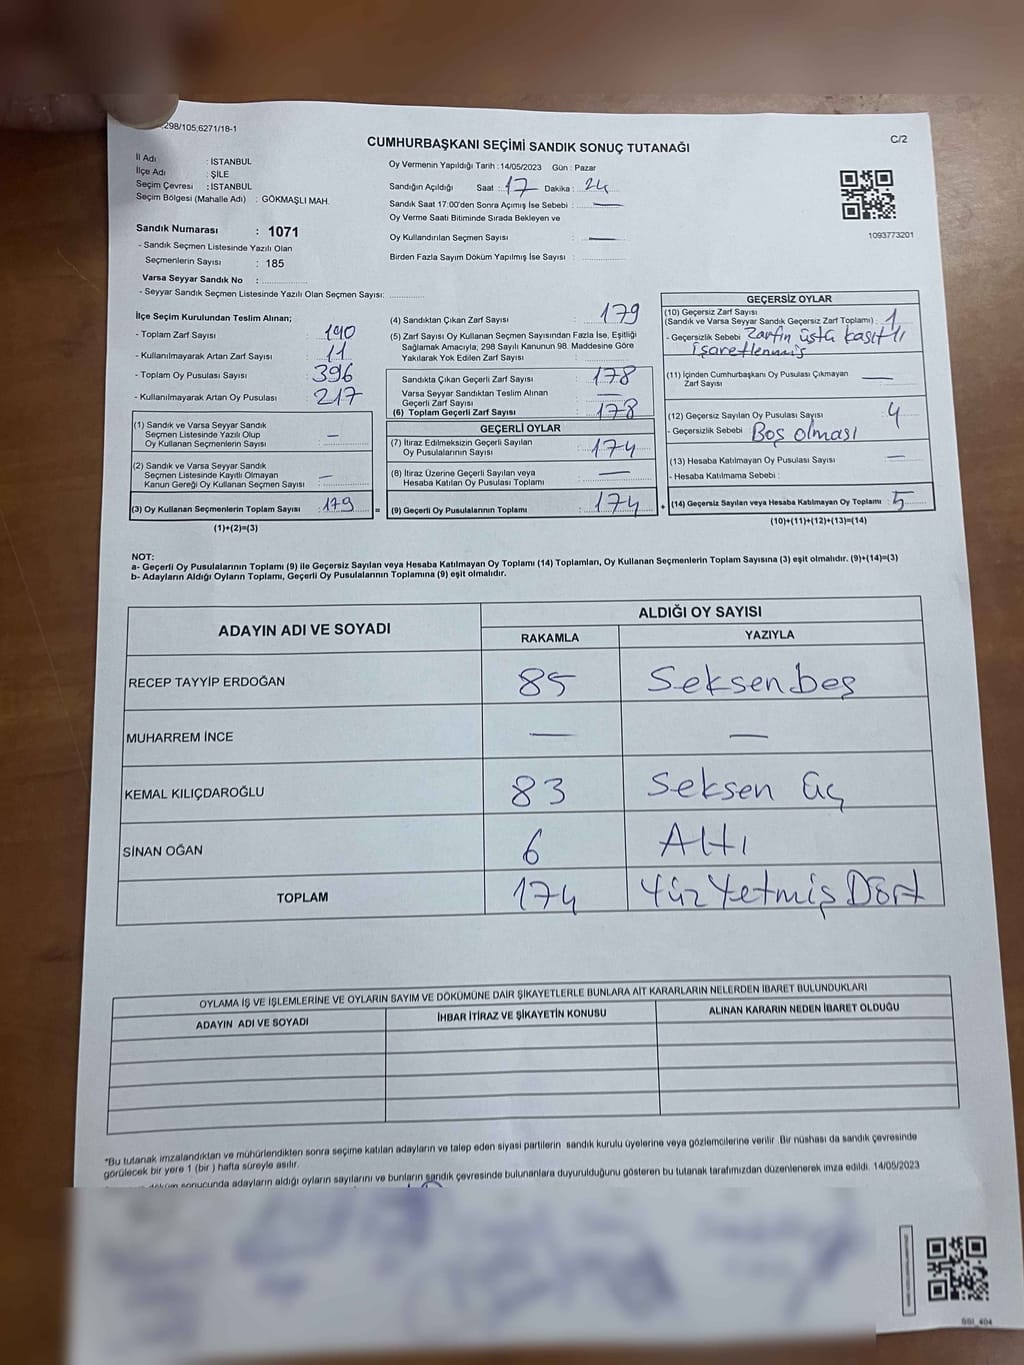 298/105,6271/18-1
C/2
CUMHURBAŞKANI SEÇİMİ SANDIK SONUÇ TUTANAĞI
İl Adı : İSTANBUL
İlçe Adı : ŞİLE
Seçim Çevresi : İSTANBUL
Seçim Bölgesi (Mahalle Adı) : GÖKMAŞLI MAH.
Sandık Numarası : 1071
- Sandık Seçmen Listesinde Yazılı Olan
Seçmenlerin Sayısı : 185
Varsa Seyyar Sandık No :
- Seyyar Sandık Seçmen Listesinde Yazılı Olan Seçmen Sayısı:
Oy Vermenin Yapıldığı Tarih : 14/05/2023 Gün : Pazar
Sandığın Açıldığı Saat : 17 Dakika : 24
Sandık Saat 17:00'den Sonra Açımış İse Sebebi : —
Oy Verme Saati Bitiminde Sırada Bekleyen ve
Oy Kullandırılan Seçmen Sayısı : —
Birden Fazla Sayım Döküm Yapılmış İse Sayısı :
1093773201
İlçe Seçim Kurulundan Teslim Alınan;
- Toplam Zarf Sayısı : 190
- Kullanılmayarak Artan Zarf Sayısı : 11
- Toplam Oy Pusulası Sayısı : 396
- Kullanılmayarak Artan Oy Pusulası : 217
(1) Sandık ve Varsa Seyyar Sandık
Seçmen Listesinde Yazılı Olup
Oy Kullanan Seçmenlerin Sayısı : —
(2) Sandık ve Varsa Seyyar Sandık
Seçmen Listesinde Kayıtlı Olmayan
Kanun Gereği Oy Kullanan Seçmen Sayısı : —
(3) Oy Kullanan Seçmenlerin Toplam Sayısı : 179 =
(1)+(2)=(3)
(4) Sandıktan Çıkan Zarf Sayısı : 179
(5) Zarf Sayısı Oy Kullanan Seçmen Sayısından Fazla İse, Eşitliği
Sağlamak Amacıyla, 298 Sayılı Kanunun 98. Maddesine Göre
Yakılarak Yok Edilen Zarf Sayısı :
Sandıkta Çıkan Geçerli Zarf Sayısı : 178
Varsa Seyyar Sandıktan Teslim Alınan
Geçerli Zarf Sayısı : —
(6) Toplam Geçerli Zarf Sayısı : 178
GEÇERLİ OYLAR
(7) İtiraz Edilmeksizin Geçerli Sayılan
Oy Pusulalarının Sayısı : 174
(8) İtiraz Üzerine Geçerli Sayılan veya
Hesaba Katılan Oy Pusulası Toplamı : —
(9) Geçerli Oy Pusulalarının Toplamı : 174 +
GEÇERSİZ OYLAR
(10) Geçersiz Zarf Sayısı
(Sandık ve Varsa Seyyar Sandık Geçersiz Zarf Toplamı) : 1
- Geçersizlik Sebebi : Zarfın üstü kasıtlı
işaretlenmiş
(11) İçinden Cumhurbaşkanı Oy Pusulası Çıkmayan
Zarf Sayısı : —
(12) Geçersiz Sayılan Oy Pusulası Sayısı : 4
- Geçersizlik Sebebi : Boş olması
(13) Hesaba Katılmayan Oy Pusulası Sayısı : —
- Hesaba Katılmama Sebebi :
(14) Geçersiz Sayılan veya Hesaba Katılmayan Oy Toplamı : 5
(10)+(11)+(12)+(13)=(14)
NOT:
a- Geçerli Oy Pusulalarının Toplamı (9) ile Geçersiz Sayılan veya Hesaba Katılmayan Oy Toplamı (14) Toplamları, Oy Kullanan Seçmenlerin Toplam Sayısına (3) eşit olmalıdır. (9)+(14)=(3)
b- Adayların Aldığı Oyların Toplamı, Geçerli Oy Pusulalarının Toplamına (9) eşit olmalıdır.
ADAYIN ADI VE SOYADI
ALDIĞI OY SAYISI
RAKAMLA YAZIYLA
RECEP TAYYİP ERDOĞAN 85 Seksenbeş
MUHARREM İNCE — —
KEMAL KILIÇDAROĞLU 83 Seksen üç
SİNAN OĞAN 6 Altı
TOPLAM 174 YüzYetmiş Dört
OYLAMA İŞ VE İŞLEMLERİNE VE OYLARIN SAYIM VE DÖKÜMÜNE DAİR ŞİKAYETLERLE BUNLARA AİT KARARLARIN NELERDEN İBARET BULUNDUKLARI
ADAYIN ADI VE SOYADI İHBAR İTİRAZ VE ŞİKAYETİN KONUSU ALINAN KARARIN NEDEN İBARET OLDUĞU
*Bu tutanak imzalandıktan ve mühürlendikten sonra seçime katılan adayların ve talep eden siyasi partilerin sandık kurulu üyelerine veya gözlemcilerine verilir .Bir nüshası da sandık çevresinde
görülecek bir yere 1 (bir ) hafta süreyle asılır.
döküm sonucunda adayların aldığı oyların sayılarını ve bunların sandık çevresinde bulunanlara duyurulduğunu gösteren bu tutanak tarafımızdan düzenlenerek imza edildi. 14/05/2023